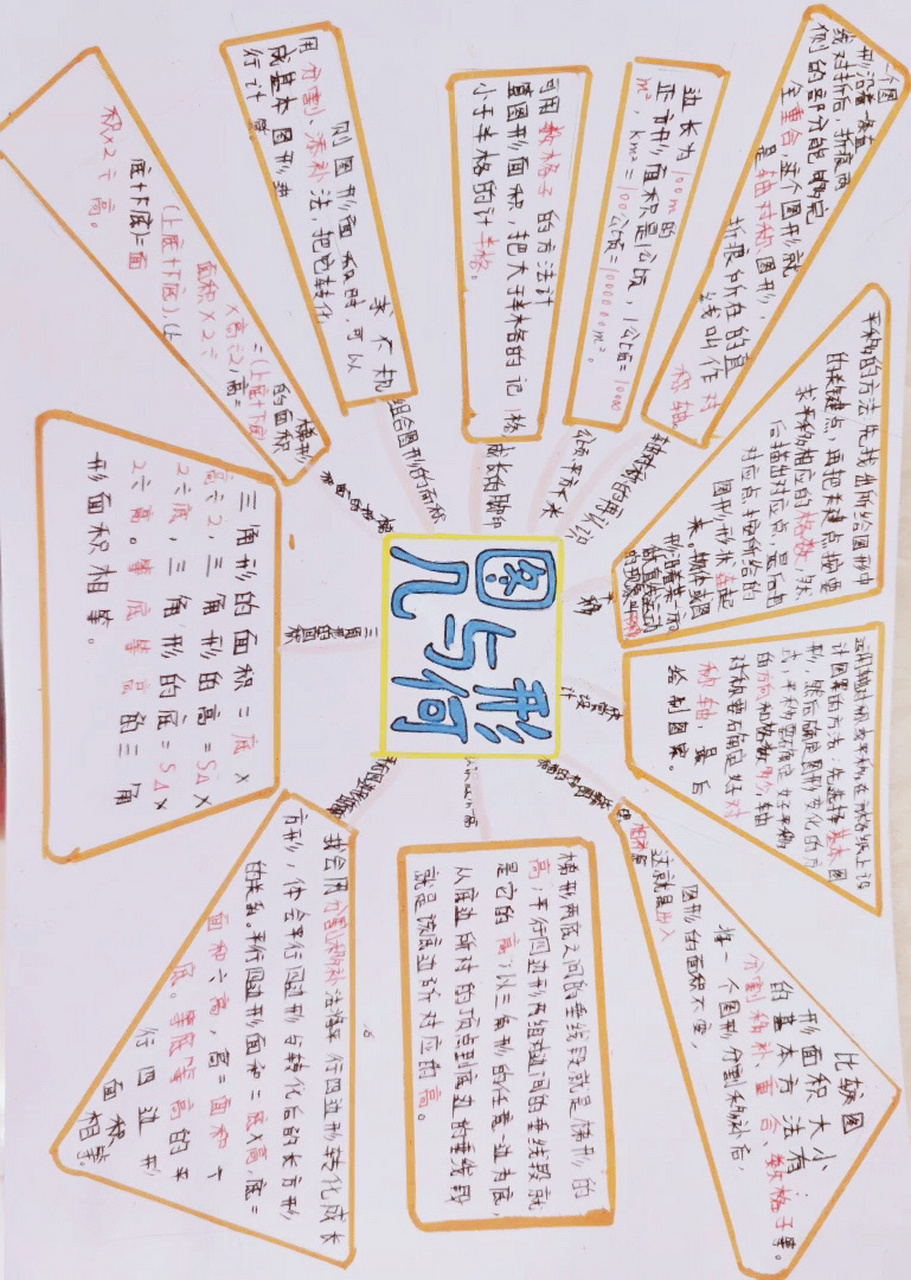 图形
与
几何
轴对称的再认识
一个图
形沿着一条直
线对折后，折痕两
侧的部分能够完
全重合，这个图形就
是轴对称图形，
折痕所在的直
线叫作对
称轴。
公顷平方千米
边长为100m的
正方形面积是1公顷，1公顷=10000
m²，km²=100公顷=1000000m²。
成长的脚印
可用数格子的方法计
算图形面积，把大于半格的记1格，
小于半格的计半格。
组合图形的面积
求不规
则图形面积时，可以
用分割、添补法，把它转化
成基本图形再
行计算
梯形
的面积
=(上底+下底)
×高÷2，高=
面积×2÷
(上底+下底)，(上
底+下底)=面
积×2÷高。
三角形的面积
三角形的面积=底×
高÷2，三角形的高=S△×
2÷底，三角形的底=S△×
2÷高。等底等高的三角
形面积相等。
我会用分割、移补法将平行四边形转化成长
方形，体会平行四边形与转化后的长方形
的关系。平行四边形面积=底×高，底=
面积÷高，高=面积÷
底。等底等高的平
行四边形
面积
相等。
梯形两底之间的垂线段就是梯形的
高，平行四边形两组对边间的垂线段就
是它的高，以三角形的任意一边为底，
从底边所对的顶点到底边的垂线段
就是该底边所对应的高。
比较图
形面积大小
的基本方法有
分割移补、重合、数格子等。
将一个图形分割移补后，
图形的面积不变，
这就是出入
相补原
理
运用轴对称或平移，在方格纸上设
计图案的方法：先选择基本图
形，然后确定图形变化的方
式，平移要确定好平移
的方向和格数，轴
对称要确定好对
称轴，最后
绘制图案。
平移
平移的方法，先找出所给图形中
的关键点，再把关键点按要
求平移相应的格数，然
后描出对应点，最后由
对应点按所给的
图形形状连起
来，物体或图
形沿着某一方
向做直线运动
的现象叫平移